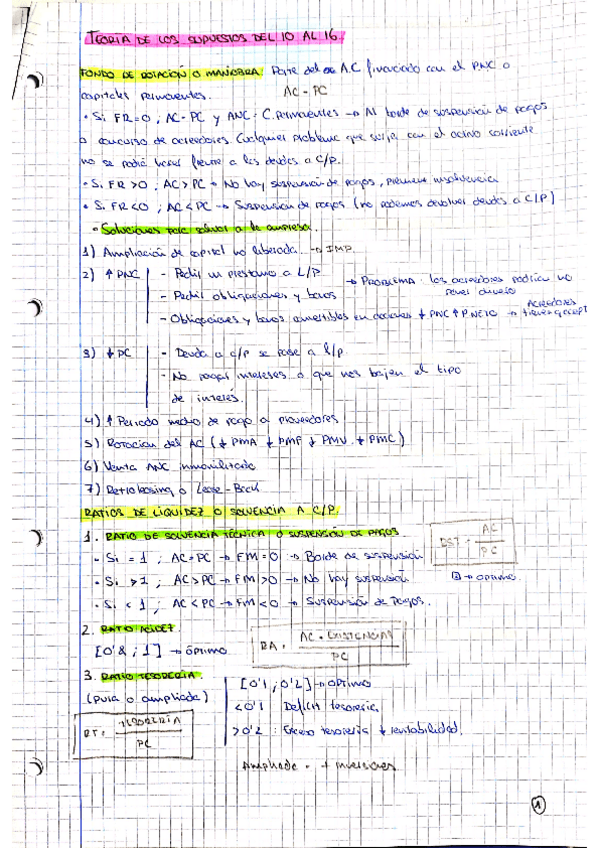 TEORIA DE LOS SUPUESTOS DEL 10 AL 16.
FONDO DE ROTACIÓN O MANIOBRA: Parte del A.C financiado con el PNC o
capitales permanentes. AC - PC
• Si FR=0, AC=PC y ANC=C.Permanentes → Al borde de suspensión de pagos
o concurso de acreedores. Cualquier problema que surja con el activo corriente
no se podrá hacer frente a las deudas a C/P.
• Si FR>0, AC>PC → No hay suspensión de pagos,
• Si FR<0, AC<PC → Suspensión de pagos (no podemos devolver deudas a C/P)
• Soluciones para salvar a la empresa.
1) Ampliación de capital no liberada. → IMP.
2) ↑ PNC
- Pedir un préstamo a L/P
→ PROBLEMA: los acreedores podrían no
querer
- Pedir obligaciones y bonos
- Obligaciones y bonos convertibles en acciones ↓ PNC ↑ P.NETO → ACREEDORES
tienen q acept
3) ↓ PC
- Deuda a c/p se pase a l/p.
- No pagar intereses o que nos bajen el tipo
de interés.
4) ↑ Periodo medio de pago a proveedores
5) Rotación del AC (↓ PMA ↓ PMF ↓ PMV ↓ PMC)
6) Venta ANC inmovilizado
7) Retroleasing o Lease-Back
RATIOS DE LIQUIDEZ O SOLVENCIA A C/P.
1. RATIO DE SOLVENCIA TÉCNICA O SUSPENSIÓN DE PAGOS
RST = AC
PC
- Si = 1, AC=PC → FM=0 → Borde de suspensión
- Si > 1, AC>PC → FM>0 → No hay suspensión. → OPTIMO.
• Si < 1, AC<PC → FM<0 → Suspensión de Pagos.
2. RATIO ACIDEZ.
[0'8 ; 1] → ÓPTIMO
RA = AC - EXISTENCIAS
PC
3. RATIO TESORERÍA.
(pura o ampliada)
RT = TESORERÍA
PC
[0'1 ; 0'2] → OPTIMO
<0'1 Déficit tesorería.
>0'2 : Exceso tesorería ↓ rentabilidad.
Ampliada = + inversiones
1